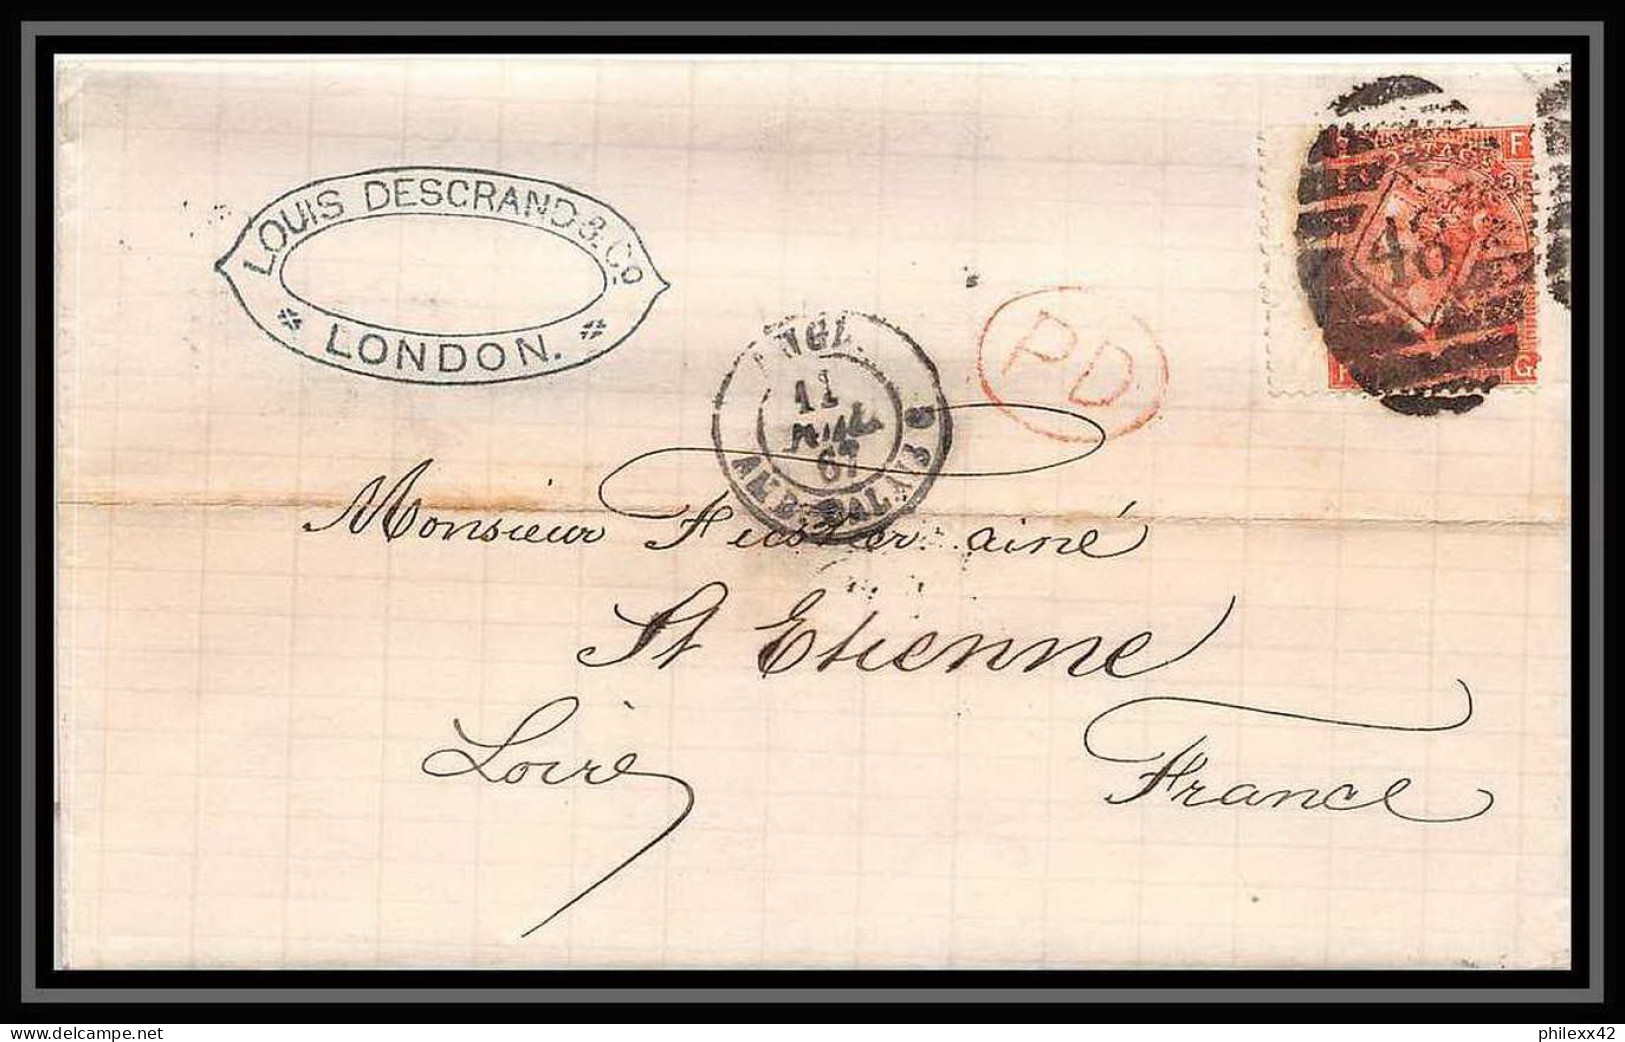 LOUIS DESGRAND & Co
LONDON.
F
48
G
PD
ANGL.
11
JUIL.
67
AMB. CALAIS G
Monsieur aîné
St Etienne
Loire
France
delcampe.net
philexx42